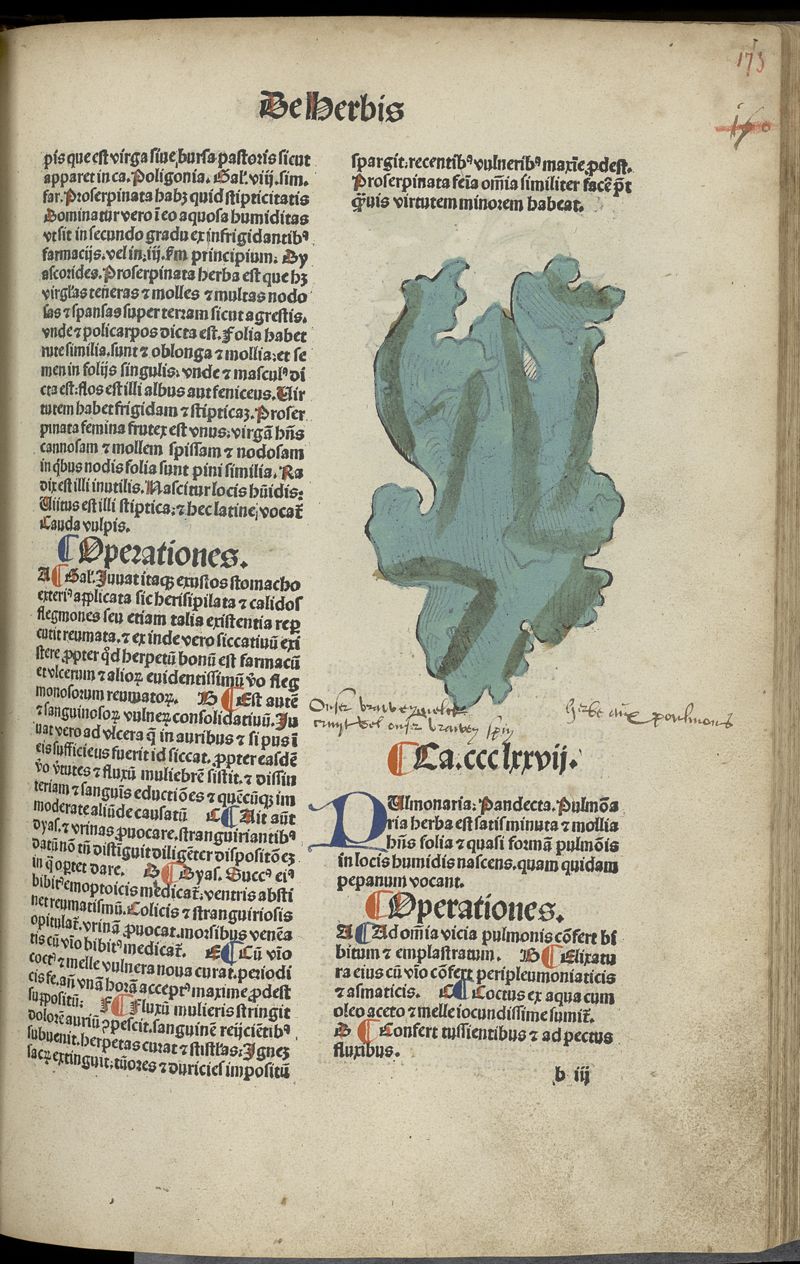 173
De Herbis
pis que est virga siue bursa pastoris sicut
apparet in ca. Poligonia. Gal'. viij. sim.
far. Proserpinata habꝫ quid stipticitatis
Dominatur vero ī eo aquosa humiditas
vt sit in secundo gradu ex infrigidantibꝰ
farmacijs. vel in .iij. fm principium. Dy
ascorides. Proserpinata herba est que hꝫ
virgl'as teneras ⁊ molles ⁊ multas nodo
sas ⁊ spansas super terram sicut agrestis.
vnde ⁊ policarpos dicta est. Folia habet
rute similia. sunt ⁊ oblonga ⁊ mollia: et se
men in folijs singulis. vnde ⁊ masculꝰ di
cta est: flos est illi albus aut feniceus. Uir
tutem habet frigidam ⁊ stipticaꝫ. Proser
pinata femina frutex est vnus: virgā hn̄s
cannosam ⁊ mollem spissam ⁊ nodosam
in q̇bus nodis folia sunt pini similia. Ra
dix est illi inutilis. Nascitur locis hūidis:
Uirtus est illi stiptica: ⁊ hec latine vocat̄
Cauda vulpis.
¶ Operationes.
A ¶ Gal'. Juuat itaqꝫ exustos stomacho
exteriꝰ applicata sic herisipilata ⁊ calidos
flegmones seu etiam talia existentia rep
cutit reumata. ⁊ ex inde vero siccatiuū exi
stere ꝓpter qd̓ herpetū bonū est farmacū
et vlcerum ⁊ alioꝝ euidentissimū v̄o fleg
monosorum reumatoꝝ. B ¶ Est autē
⁊ sanguinosoꝝ vulneꝝ consolidatiuū. Ju
uat vero ad vlcera q̄ in auribus ⁊ si pus ī
eis sufficiens fuerit id siccat. ꝓpter easdē
v̄o vtutes ⁊ fluxū muliebrē sistit. ⁊ dissin
teriam ⁊ sanguīs eductiōes ⁊ quēcūqꝫ im
moderate aliūde causatū C ¶ Ait aūt
dyas. ⁊ vrinas ꝓuocare. stranguiriantibꝰ
datū nō tn̄ distīguit diligēter dispositōeꝫ
in q̄ oꝑtet dare. D ¶ Dyas. Succꝰ eiꝰ
bibitꝰ emoptoicis medicat̄. ventris absti
net reumatismū. Colicis ⁊ stranguiriosis
opitulat̄. vrinā ꝓuocat. morsibus venēa
tis cū vīo bibitꝰ medicat̄. E ¶ Cū vīo
coctꝰ ⁊ melle vulnera noua curat. periodi
cis fe. an̄ vnā horā acceptꝰ maxime ꝓdest
suppositū: F ¶ Fluxū mulieris stringit
dolorē auriū ꝯpescit. sanguinē reijciētibꝰ
subuenit. herpetas curat ⁊ fistl'as: Igneꝫ
sacꝝ extinguit: tūores ⁊ duricies impositū
spargit. recentibꝰ vulneribꝰ maxīe ꝓdest.
Proserpinata fēīa oīa similiter facē pt̄
qͣuis virtutem minorem habeat.
herbe aux poulmons
¶ Ca. ccclxxvij.
PUlmonaria: Pandecta. Pulmōa
ria herba est satis minuta ⁊ mollia
hn̄s folia ⁊ quasi formā pulmōis
in locis humidis nascens. quam quidam
pepanum vocant.
¶ Operationes.
A ¶ Ad om̄ia vicia pulmonis cōfert bi
bitum ⁊ emplastratum. B ¶ Elixatu
ra eius cū vīo cōfert peripleumoniaticis
⁊ asmaticis. C ¶ Coctus ex aqua cum
oleo aceto ⁊ melle iocundissime sumit̄.
D ¶ Confert tussientibus ⁊ ad pectus
fluxibus.
b iij